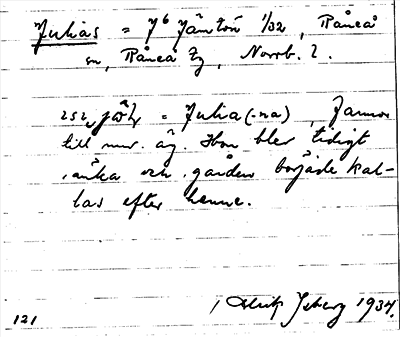 Julias = J⁶ Jämtön 1/32, Råneå
sn, Råneå tg, Norrb. l.
= Julia (-na), farmor
till nuv. äg. Hon blev tidigt
änka och gården började kal-
las efter henne.
Isberg 1934.
121